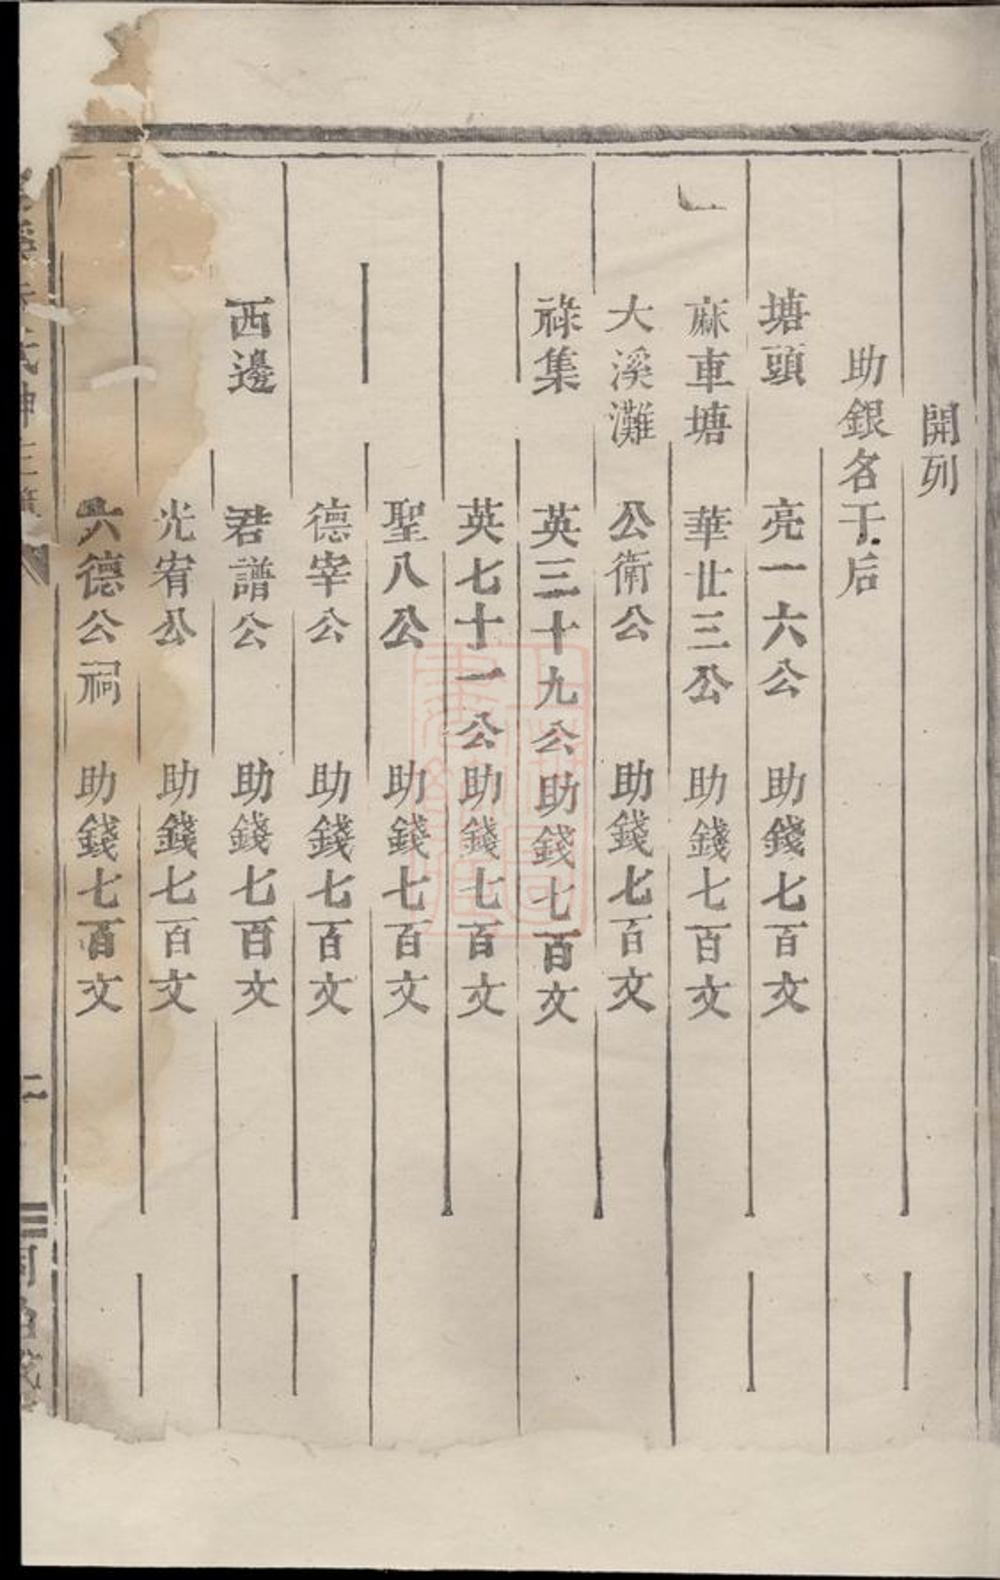 開列
助銀名于后
塘頭 亮一六公 助錢七百文
麻車塘 華廿三公 助錢七百文
大溪灘 公衛公 助錢七百文
祿集 英三十九公 助錢七百文
英七十一公 助錢七百文
聖八公 助錢七百文
德宰公 助錢七百文
西邊 君譜公 助錢七百文
光宥公 助錢七百文
六德公祠 助錢七百文
二